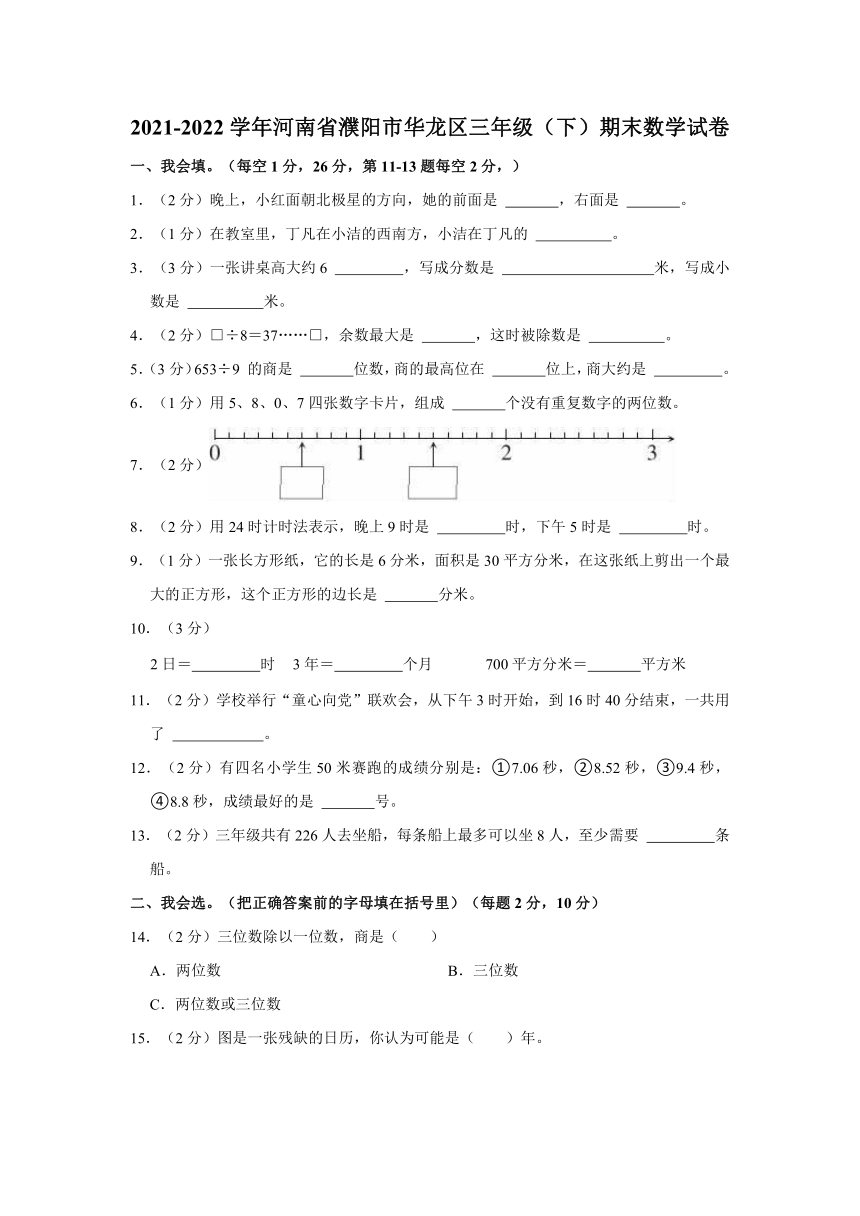 2021-2022学年河南省濮阳市华龙区三年级（下）期末数学试卷
一、我会填。（每空1分，26分，第11-13题每空2分，）
1．（2分）晚上，小红面朝北极星的方向，她的前面是 ______ ，右面是 ______ 。
2．（1分）在教室里，丁凡在小洁的西南方，小洁在丁凡的 ______ 。
3．（3分）一张讲桌高大约6 ______ ，写成分数是 ______ 米，写成小
数是 ______ 米。
4．（2分）□÷8＝37……□，余数最大是 ______ ，这时被除数是 ______ 。
5．（3分）653÷9 的商是 ______ 位数，商的最高位在 ______ 位上，商大约是 ______ 。
6．（1分）用5、8、0、7四张数字卡片，组成 ______ 个没有重复数字的两位数。
7．（2分）
0 1 2 3
8．（2分）用24时计时法表示，晚上9时是 ______ 时，下午5时是 ______ 时。
9．（1分）一张长方形纸，它的长是6分米，面积是30平方分米，在这张纸上剪出一个最
大的正方形，这个正方形的边长是 ______ 分米。
10．（3分）
2日＝______ 时 3年＝______ 个月 700平方分米＝______ 平方米
11．（2分）学校举行“童心向党”联欢会，从下午3时开始，到16时40分结束，一共用
了 ______ 。
12．（2分）有四名小学生50米赛跑的成绩分别是：①7.06秒，②8.52秒，③9.4秒，
④8.8秒，成绩最好的是 ______ 号。
13．（2分）三年级共有226人去坐船，每条船上最多可以坐8人，至少需要 ______ 条
船。
二、我会选。（把正确答案前的字母填在括号里）（每题2分，10分）
14．（2分）三位数除以一位数，商是（　　）
A．两位数 B．三位数
C．两位数或三位数
15．（2分）图是一张残缺的日历，你认为可能是（　　）年。